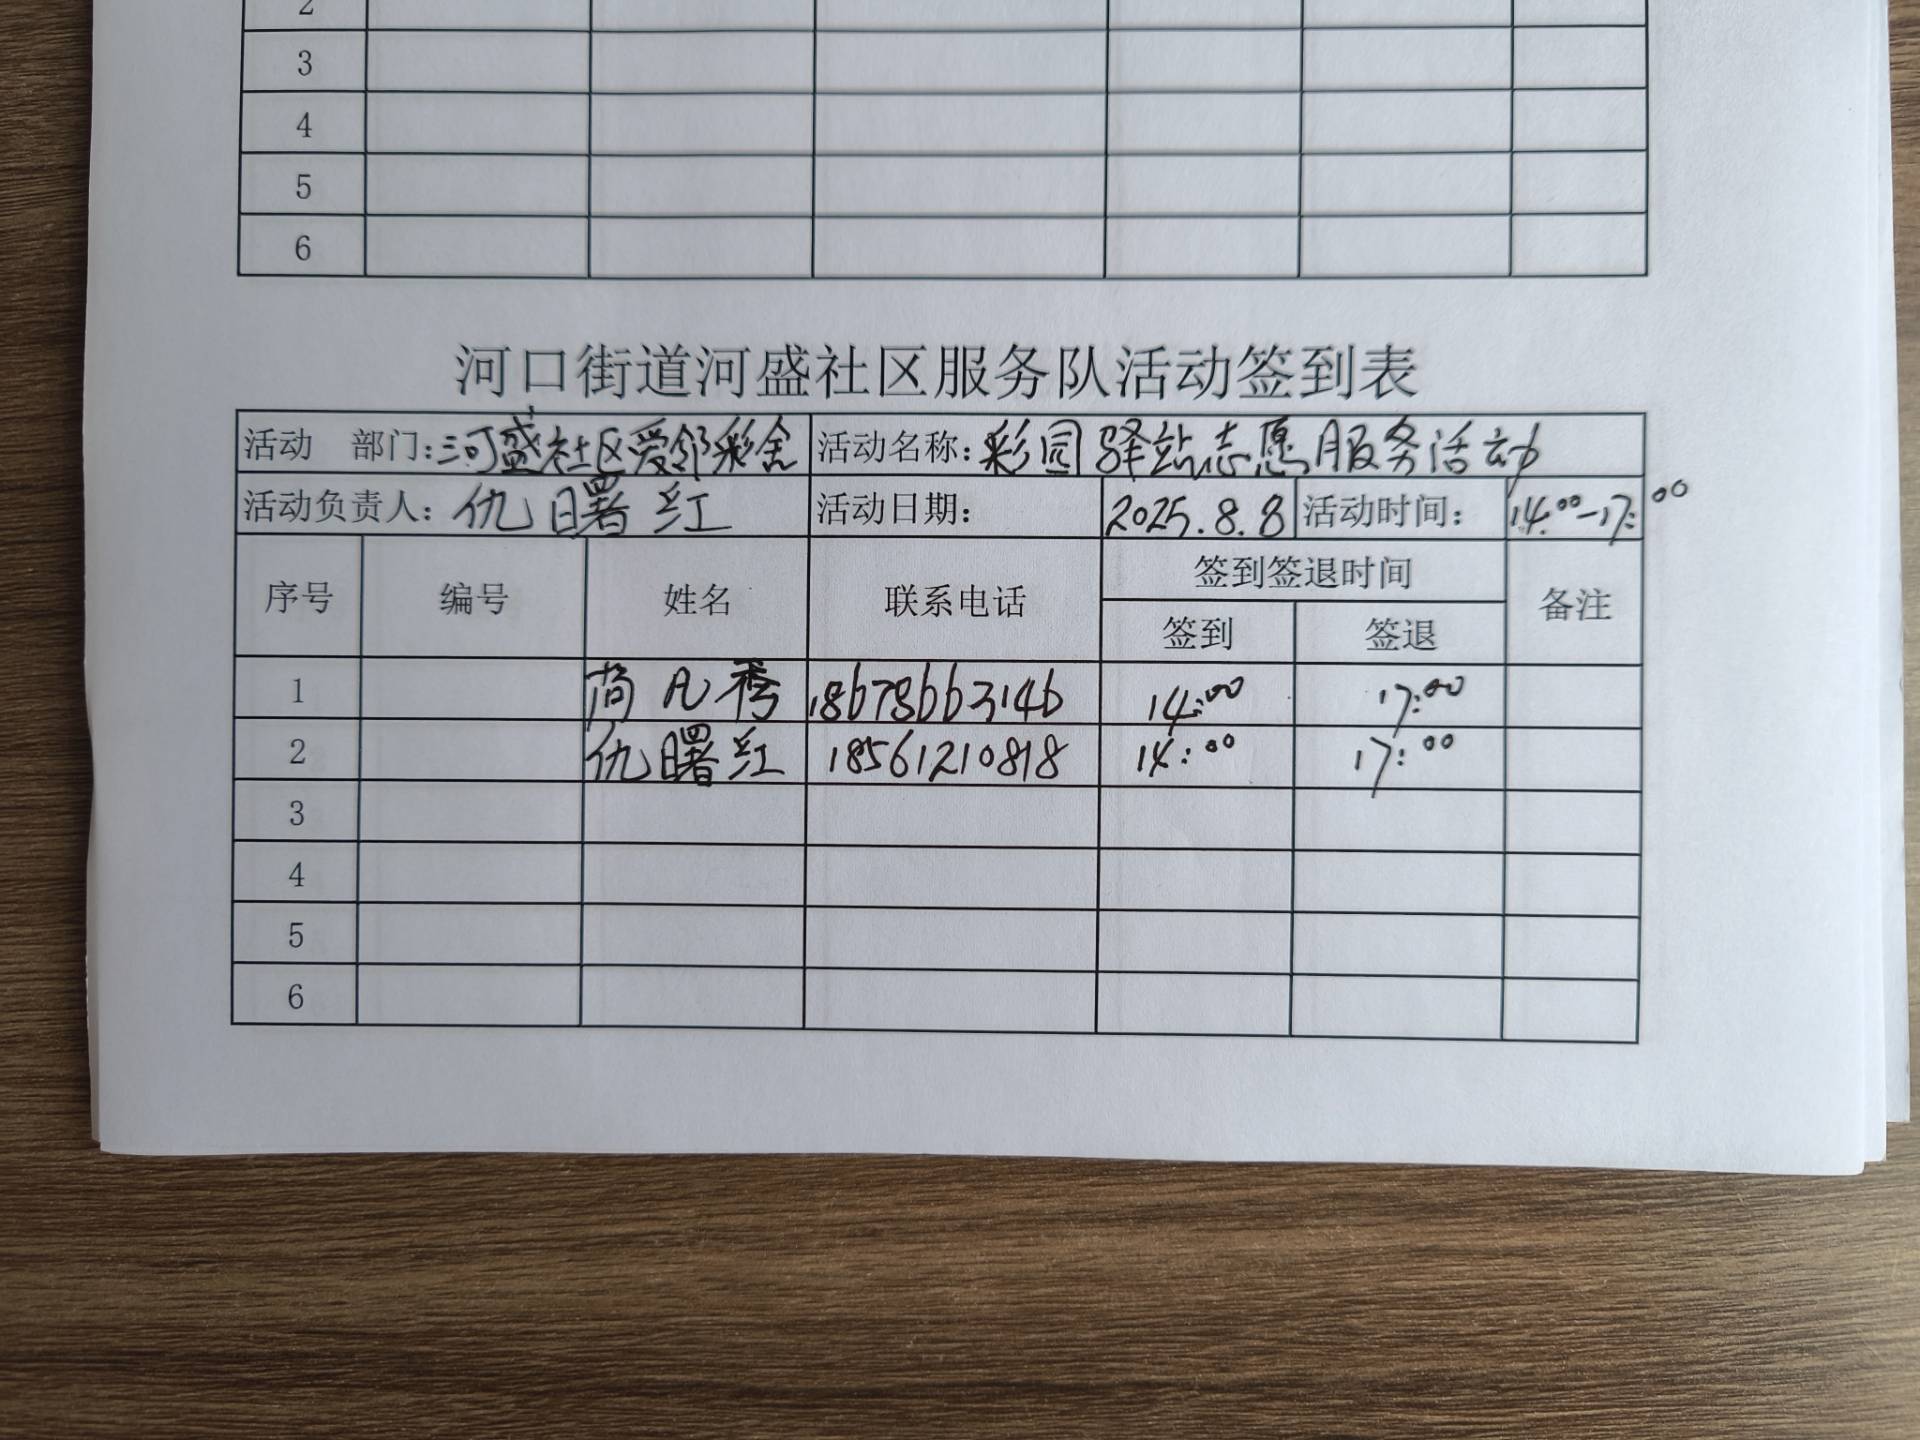 2
3
4
5
6
河口街道河盛社区服务队活动签到表
活动 部门：河盛社区爱邻彩舍 活动名称：彩园驿站志愿服务活动
活动负责人：仇曙红 活动日期： 2025.8.8 活动时间： 14:00-17:00
序号 编号 姓名 联系电话 签到签退时间 备注
签到 签退
1 尚凡秀 18678663146 14:00 17:00
2 仇曙红 18561210818 14:00 17:00
3
4
5
6